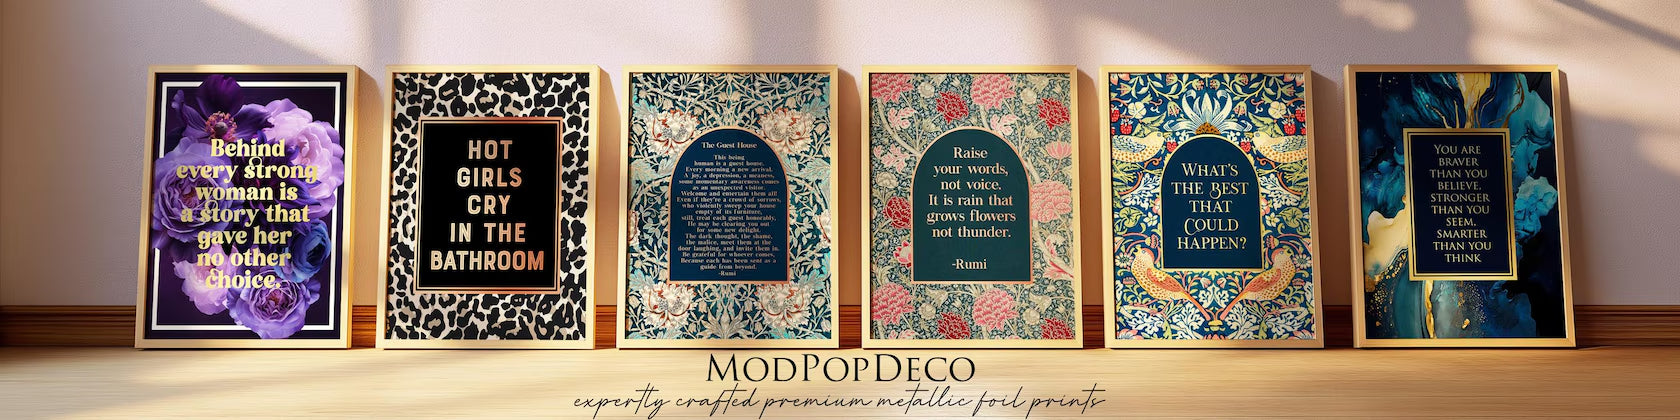 Behind
every strong
woman is
a story that
gave her
no other
choice.
HOT
GIRLS
CRY
IN THE
BATHROOM
The Guest House
This being
human is a guest house.
Every morning a new arrival.
A joy, a depression, a meaness,
some momentary awareness comes
as an unexpected visitor.
Welcome and entertain them all!
Even if they're a crowd of sorrows,
who violently sweep your house
empty of its furniture,
still, treat each guest honorably,
He may be clearing you out
for some new delight.
The dark thought, the shame,
the malice, meet them at the
door laughing, and invite them in.
Be grateful for whoever comes,
Because each has been sent as a
guide from beyond.
-Rumi
Raise
your words,
not voice.
It is rain that
grows flowers
not thunder.
-Rumi
WHAT'S
THE BEST
THAT
COULD
HAPPEN?
YOU ARE
BRAVER
THAN YOU
BELIEVE,
STRONGER
THAN YOU
SEEM,
SMARTER
THAN YOU
THINK
MODPOPDECO
expertly crafted premium metallic foil prints